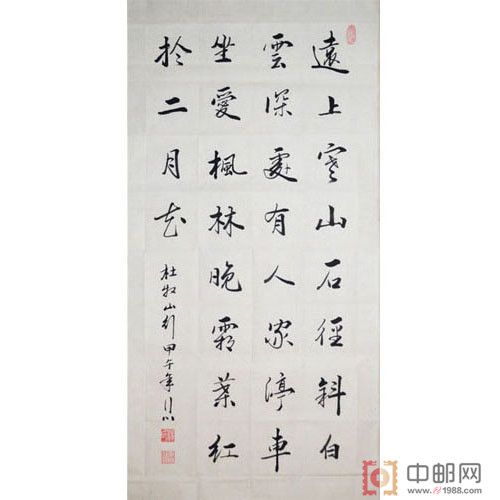 遠上寒山石徑斜白
雲深處有人家停車
坐愛楓林晚霜葉紅
於二月花
杜牧山行 甲午年
中邮网
1988.com